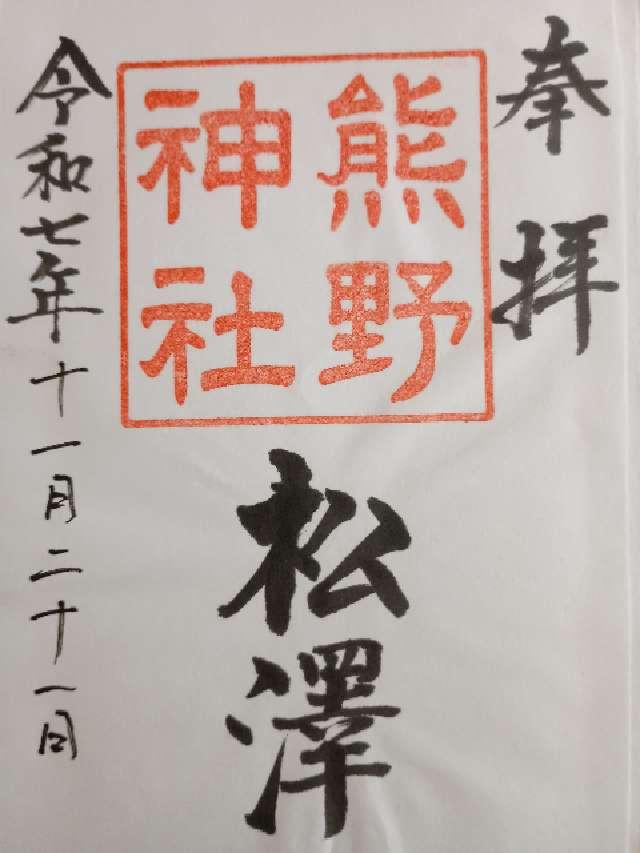 奉拝
熊野
神社
松澤
令和七年十一月二十一日